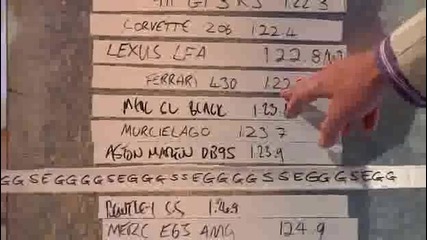 GT3 RS 1.22.3
CORVETTE Z06 1.22.4
LEXUS LFA 1.22.8/
FERRARI 430 1.22.
MERC CL BLACK 1.23.
MURCIELAGO 1.23.7
ASTON MARTIN DB9S 1.23.9
GGSEGGGGSEGGGSSEGGGGSSEGGGSEGG
BENTLEY SS 1.24.9
MERC E63 AMG 1.24.9